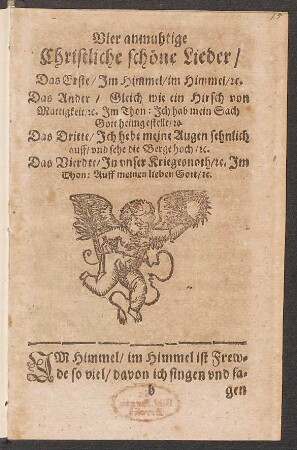 Vier anmuhtige
Christliche schöne Lieder/
Das Erste/ Im Himmel/ im Himmel/ ꝛc.
Das Ander/ Gleich wie ein Hirsch von
Mattigkeit/ ꝛc. Im Thon: Ich hab mein Sach
Gott heimgestelle/ ꝛc.
Das Dritte/ Ich hebe meine Augen sehnlich
auff/ vnd sehe die Berge hoch/ ꝛc.
Das Vierdte/ In vnser Kriegesnoth/ ꝛc. Im
Thon: Auff meinen lieben Gott/ ꝛc.
IM Himmel/ im Himmel ist Frew-
de so viel/ davon ich singen vnd sa-
b gen